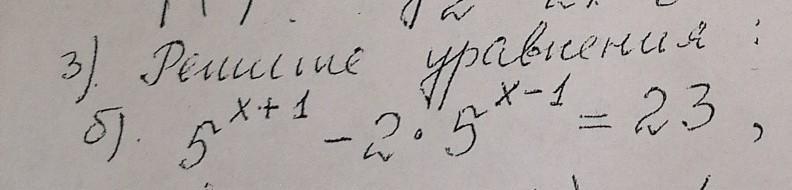 3). Решите уравнения :
б). 5^{x+1} - 2 · 5^{x-1} = 23 ,